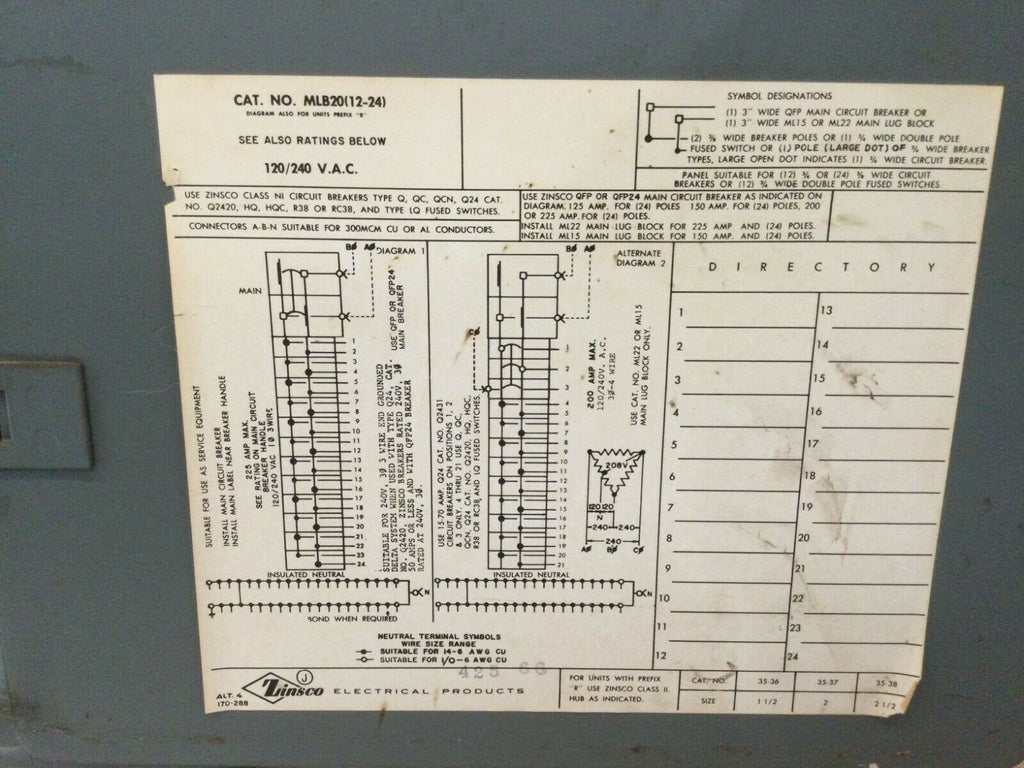 CAT. NO. MLB20(12-24)
DIAGRAM ALSO FOR UNITS PREFIX "R"
SEE ALSO RATINGS BELOW
120/240 V.A.C.
SYMBOL DESIGNATIONS
(1) 3" WIDE QFP MAIN CIRCUIT BREAKER OR
(1) 3" WIDE ML15 OR ML22 MAIN LUG BLOCK
(2) ⅜ WIDE BREAKER POLES OR (1) ¾ WIDE DOUBLE POLE
FUSED SWITCH OR (1) POLE (LARGE DOT) OF ¾ WIDE BREAKER
TYPES, LARGE OPEN DOT INDICATES (1) ¾ WIDE CIRCUIT BREAKER.
PANEL SUITABLE FOR (12) ¾ OR (24) ⅜ WIDE CIRCUIT
BREAKERS OR (12) ¾ WIDE DOUBLE POLE FUSED SWITCHES.
USE ZINSCO CLASS NI CIRCUIT BREAKERS TYPE Q, QC, QCN, Q24 CAT.
NO. Q2420, HQ, HQC, R38 OR RC38, AND TYPE LQ FUSED SWITCHES.
CONNECTORS A-B-N SUITABLE FOR 300MCM CU OR AL CONDUCTORS.
USE ZINSCO QFP OR QFP24 MAIN CIRCUIT BREAKER AS INDICATED ON
DIAGRAM. 125 AMP. FOR (24) POLES 150 AMP. FOR (24) POLES, 200
OR 225 AMP. FOR (24) POLES.
INSTALL ML22 MAIN LUG BLOCK FOR 225 AMP AND (24) POLES.
INSTALL ML15 MAIN LUG BLOCK FOR 150 AMP. AND (24) POLES.
BØ AØ DIAGRAM 1
MAIN
1
2
3
4
5
6
7
8
9
10
11
12
13
14
15
16
17
18
19
20
21
22
23
24
SUITABLE FOR USE AS SERVICE EQUIPMENT
INSTALL MAIN CIRCUIT BREAKER
INSTALL MAIN LABEL NEAR BREAKER HANDLE
225 AMP MAX.
SEE RATING ON MAIN CIRCUIT
BREAKER HANDLE
120/240 VAC 1Ø 3WIRE
USE QFP OR QFP24
MAIN BREAKER
SUITABLE FOR 240V, 3Ø 3 WIRE END GROUNDED
DELTA SYSTEM WHEN USED WITH TYPE Q24, CAT.
NO. Q2420, ZINSCO BREAKERS RATED 240V, 3Ø
50 AMPS OR LESS AND WITH QFP24 BREAKER
RATED AT 240V, 3Ø.
INSULATED NEUTRAL
N
BOND WHEN REQUIRED
BØ AØ
ALTERNATE
DIAGRAM 2
CØ
1
2
3
4
5
6
7
8
9
10
11
12
13
14
15
16
17
18
19
20
21
USE 15-70 AMP. Q24 CAT. NO. Q2431
CIRCUIT BREAKERS ON POSITIONS 1, 2
& 3 ONLY. 4 THRU 21 USE Q, QC,
QCN, Q24 CAT. NO. Q2420, HQ, HQC,
R38 OR RC38, AND LQ FUSED SWITCHES.
200 AMP MAX.
120/240V. A.C.
3Ø-4 WIRE
USE CAT. NO. ML22 OR ML15
MAIN LUG BLOCK ONLY.
208V
120 120
N
240 240
240
AØ BØ CØ
INSULATED NEUTRAL
N
NEUTRAL TERMINAL SYMBOLS
WIRE SIZE RANGE
SUITABLE FOR 14-6 AWG CU
SUITABLE FOR 1/0-6 AWG CU
425 66
DIRECTORY
1
2
3
4
5
6
7
8
9
10
11
12
13
14
15
16
17
18
19
20
21
22
23
24
ALT. 4
170-288
J
Zinsco ELECTRICAL PRODUCTS
FOR UNITS WITH PREFIX
"R" USE ZINSCO CLASS II.
HUB AS INDICATED.
CAT. NO. 35-36 35-37 35-38
SIZE 1 1/2 2 2 1/2